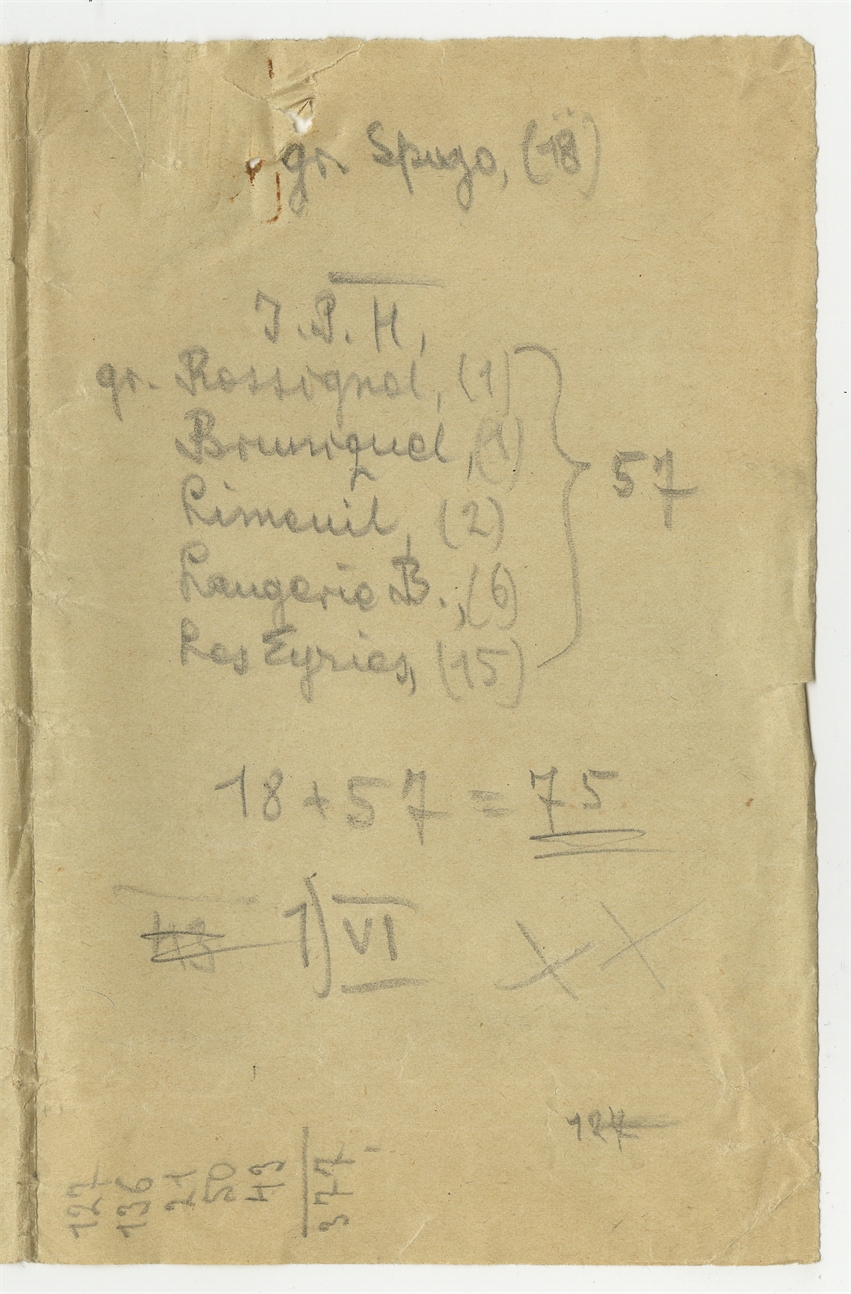 gr. Spugo, (18)
I.P.H,
gr. Rossignol, (1)
Bruniquel, (1)
Limeuil, (2)
Laugerie B., (6)
Les Eyzies, (15)
57
18 + 57 = 75
43 1) VI X X
127
127
136
21
50
43
377